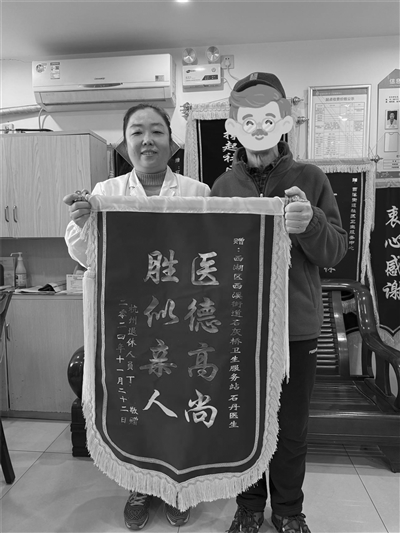 赠：西湖区西溪街道石灰桥卫生服务站 石丹医生
医德高尚
胜似亲人
杭州退休人员丁 敬赠
二〇二四年十一月二十二日
衷心感谢